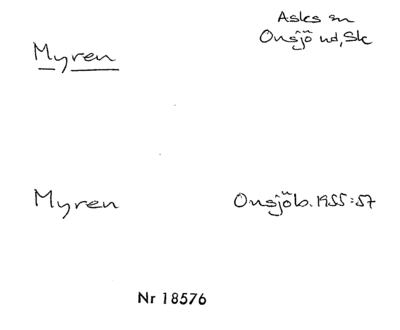 Asks sn
Myren
Onsjö hd, Sk
Myren
Onsjöb. 1955:57
Nr 18576